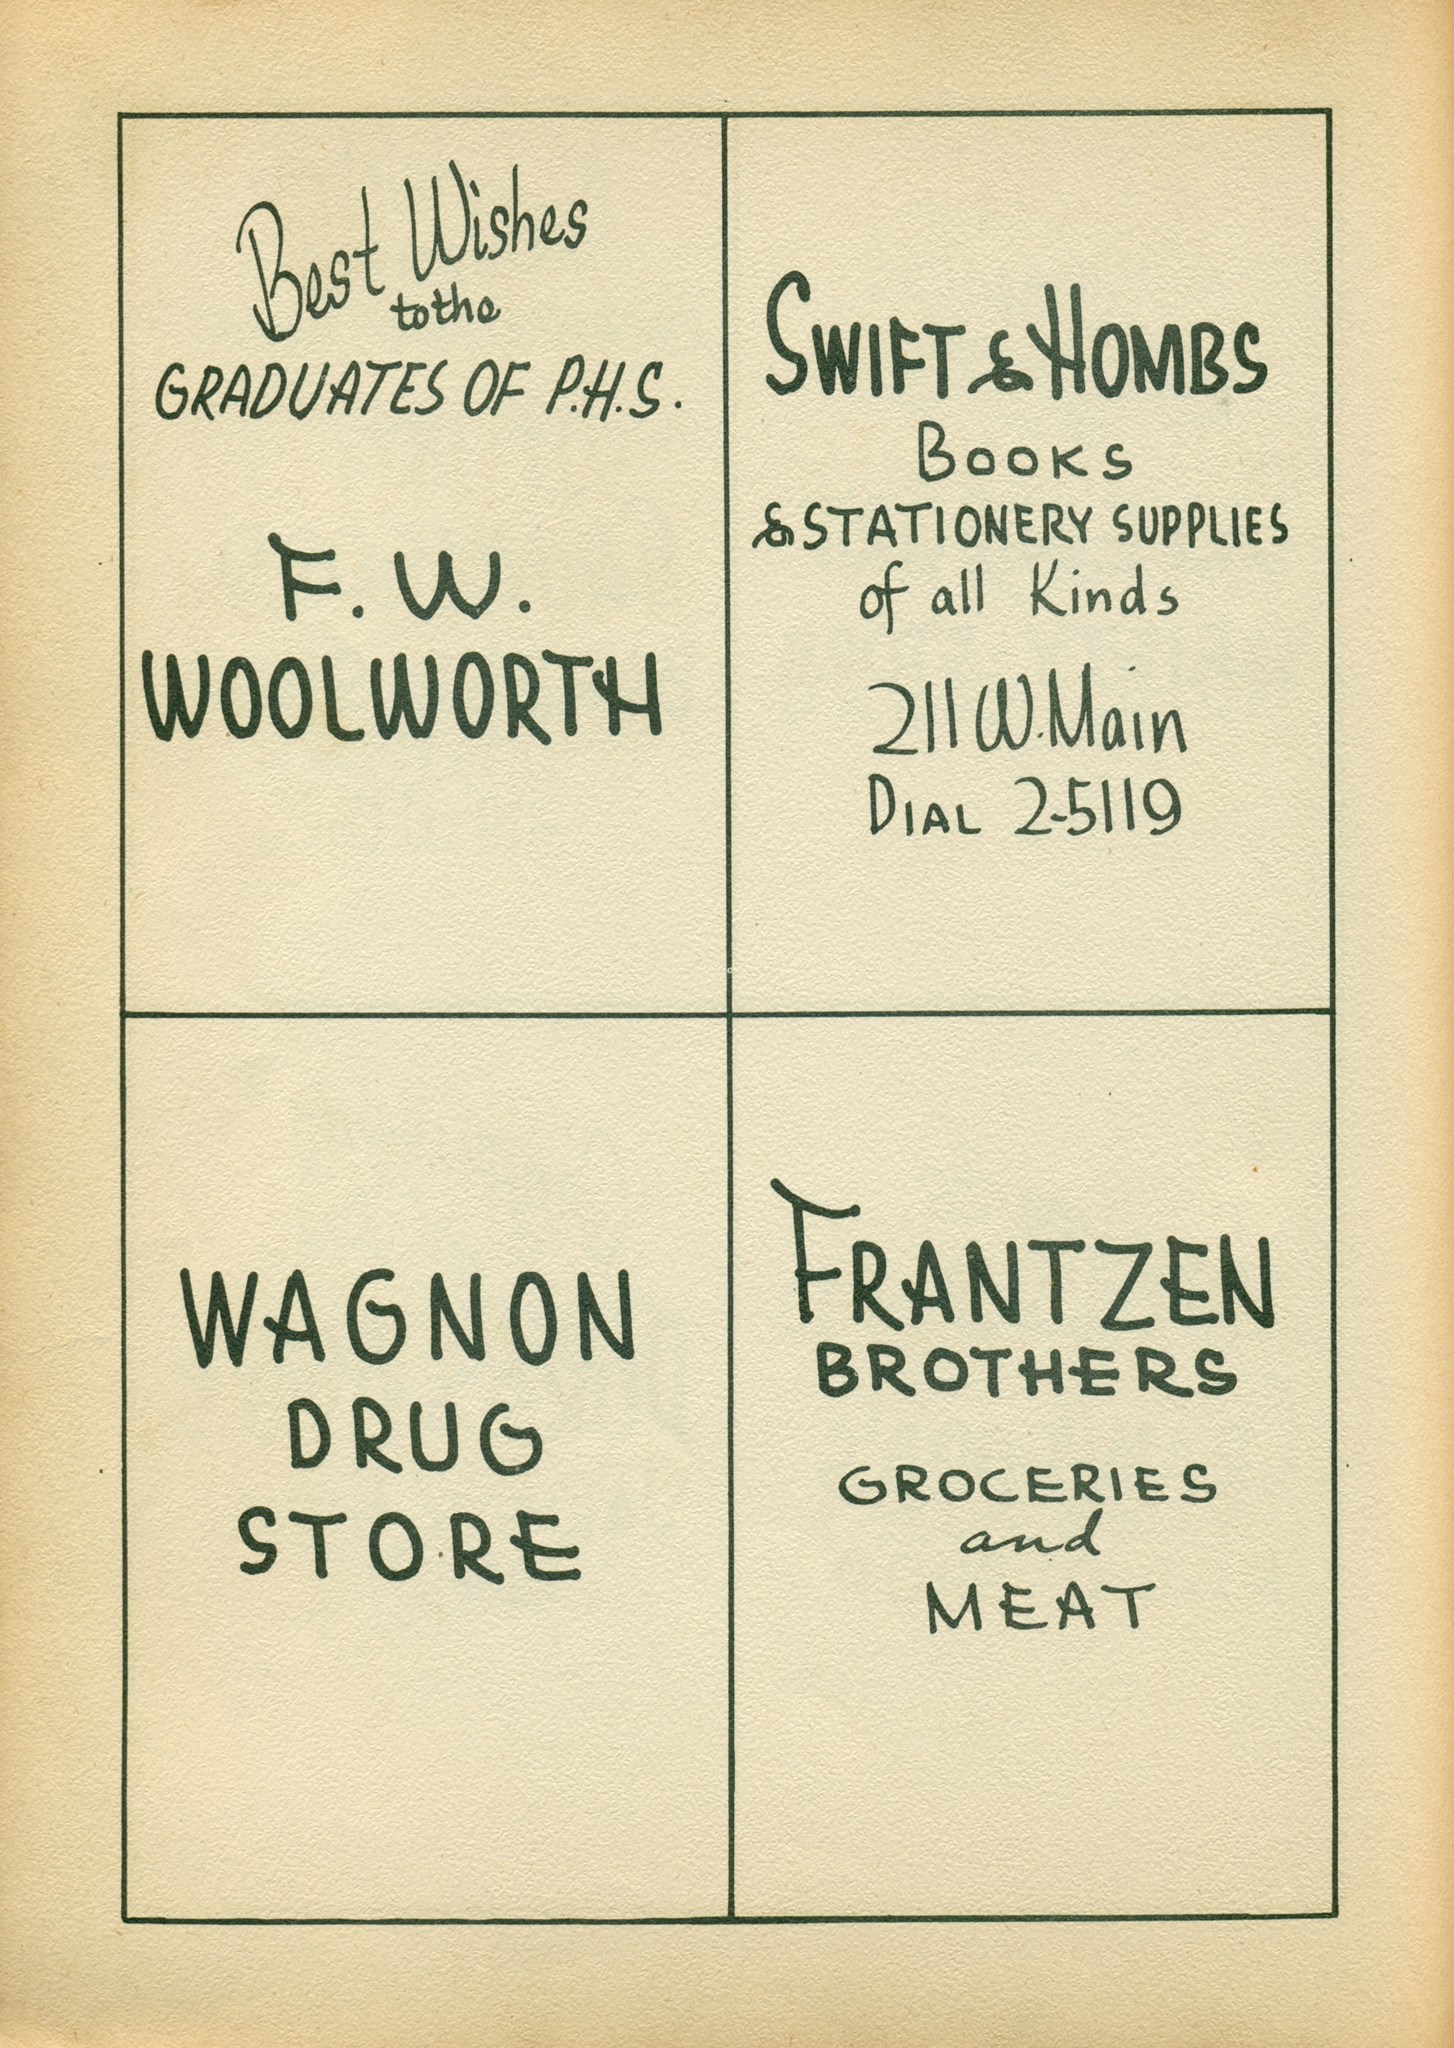 Best Wishes
to the
GRADUATES OF P.H.S.
F. W.
WOOLWORTH
SWIFT & HOMBS
BOOKS
& STATIONERY SUPPLIES
of all Kinds
211 W. Main
DIAL 2-5119
WAGNON
DRUG
STORE
FRANTZEN
BROTHERS
GROCERIES
and
MEAT